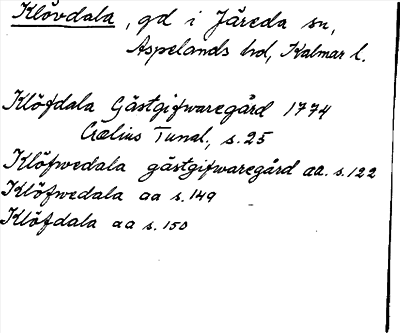 Klövdala, gd i Järeda sn,
Aspelands hd, Kalmar l.
Klöfdala Gästgifwaregård 1774
Crælius Tunal., s. 25
Klöfwedala gästgifwaregård aa. s. 122
Klöfwedala aa s. 149
Klöfdala aa s. 150